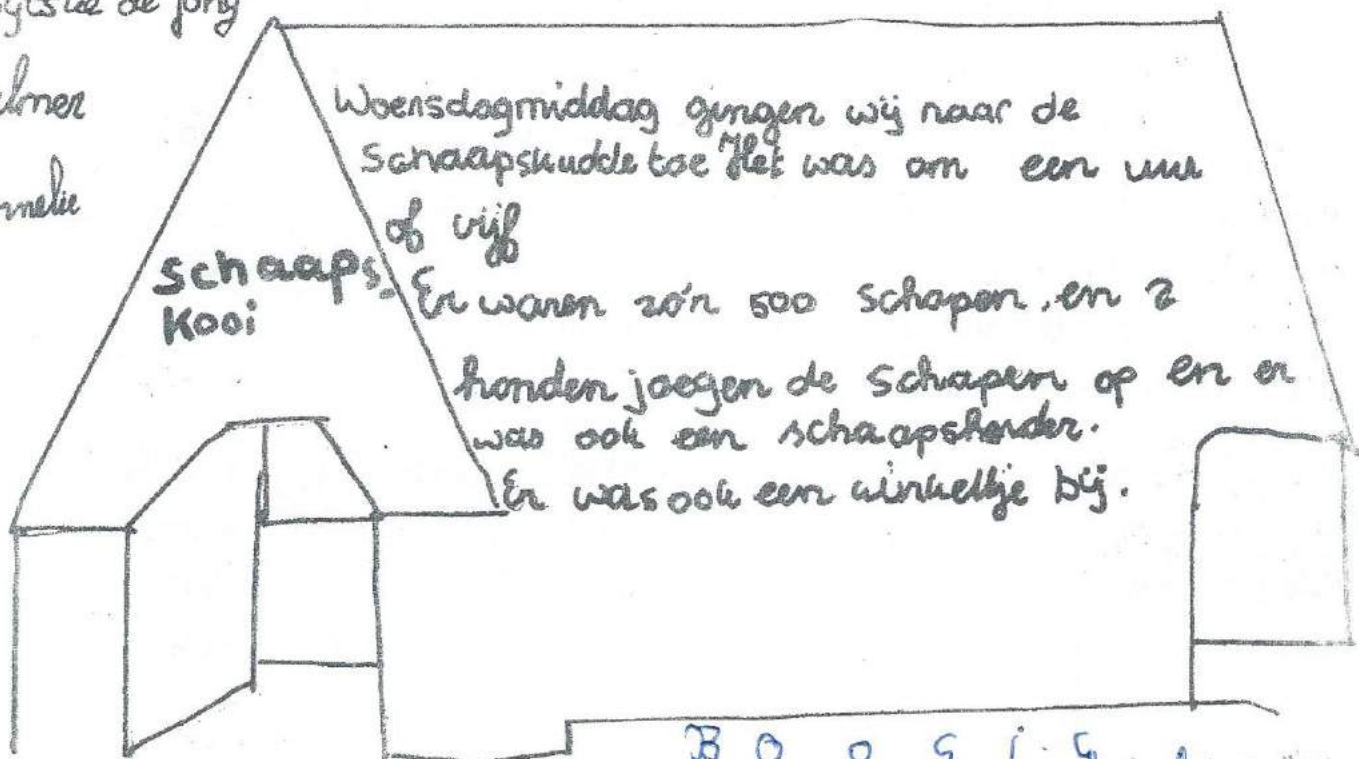 de jong
Woensdagmiddag gingen wij naar de
Schaapskudde toe Het was om een uur
of vijf
Schaaps-
Kooi
Er waren zo'n 500 schapen, en 2
honden jaegen de schapen op en er
was ook een schaapsherder.
Er was ook een winkeltje bij.